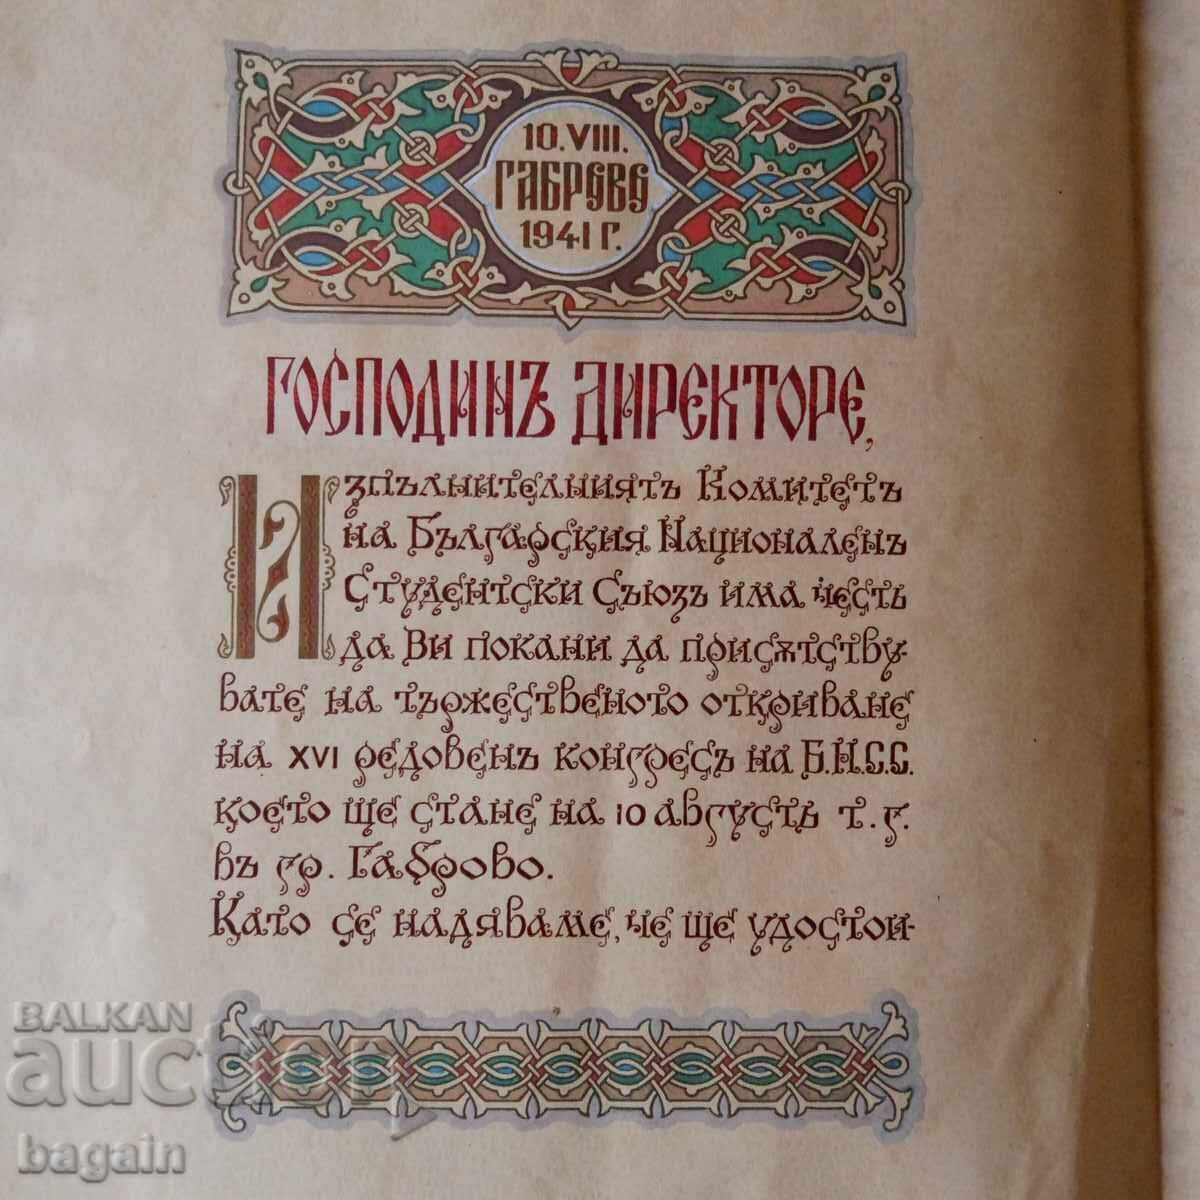 10.VIII.
ГАБРОВО
1941 Г.
ГОСПОДИНЪ ДИРЕКТОРЕ,
Изпълнителниятъ Комитетъ
на Българския Националенъ
Студентски Съюзъ има честь
да Ви покани да присѫтству-
вате на тържественото откриване
на XVI редовенъ конгресъ на Б.Н.С.С.
което ще стане на 10 августъ т.г.
въ гр. Габрово.
Като се надяваме, че ще удостои-
BALKAN
auction
bagain